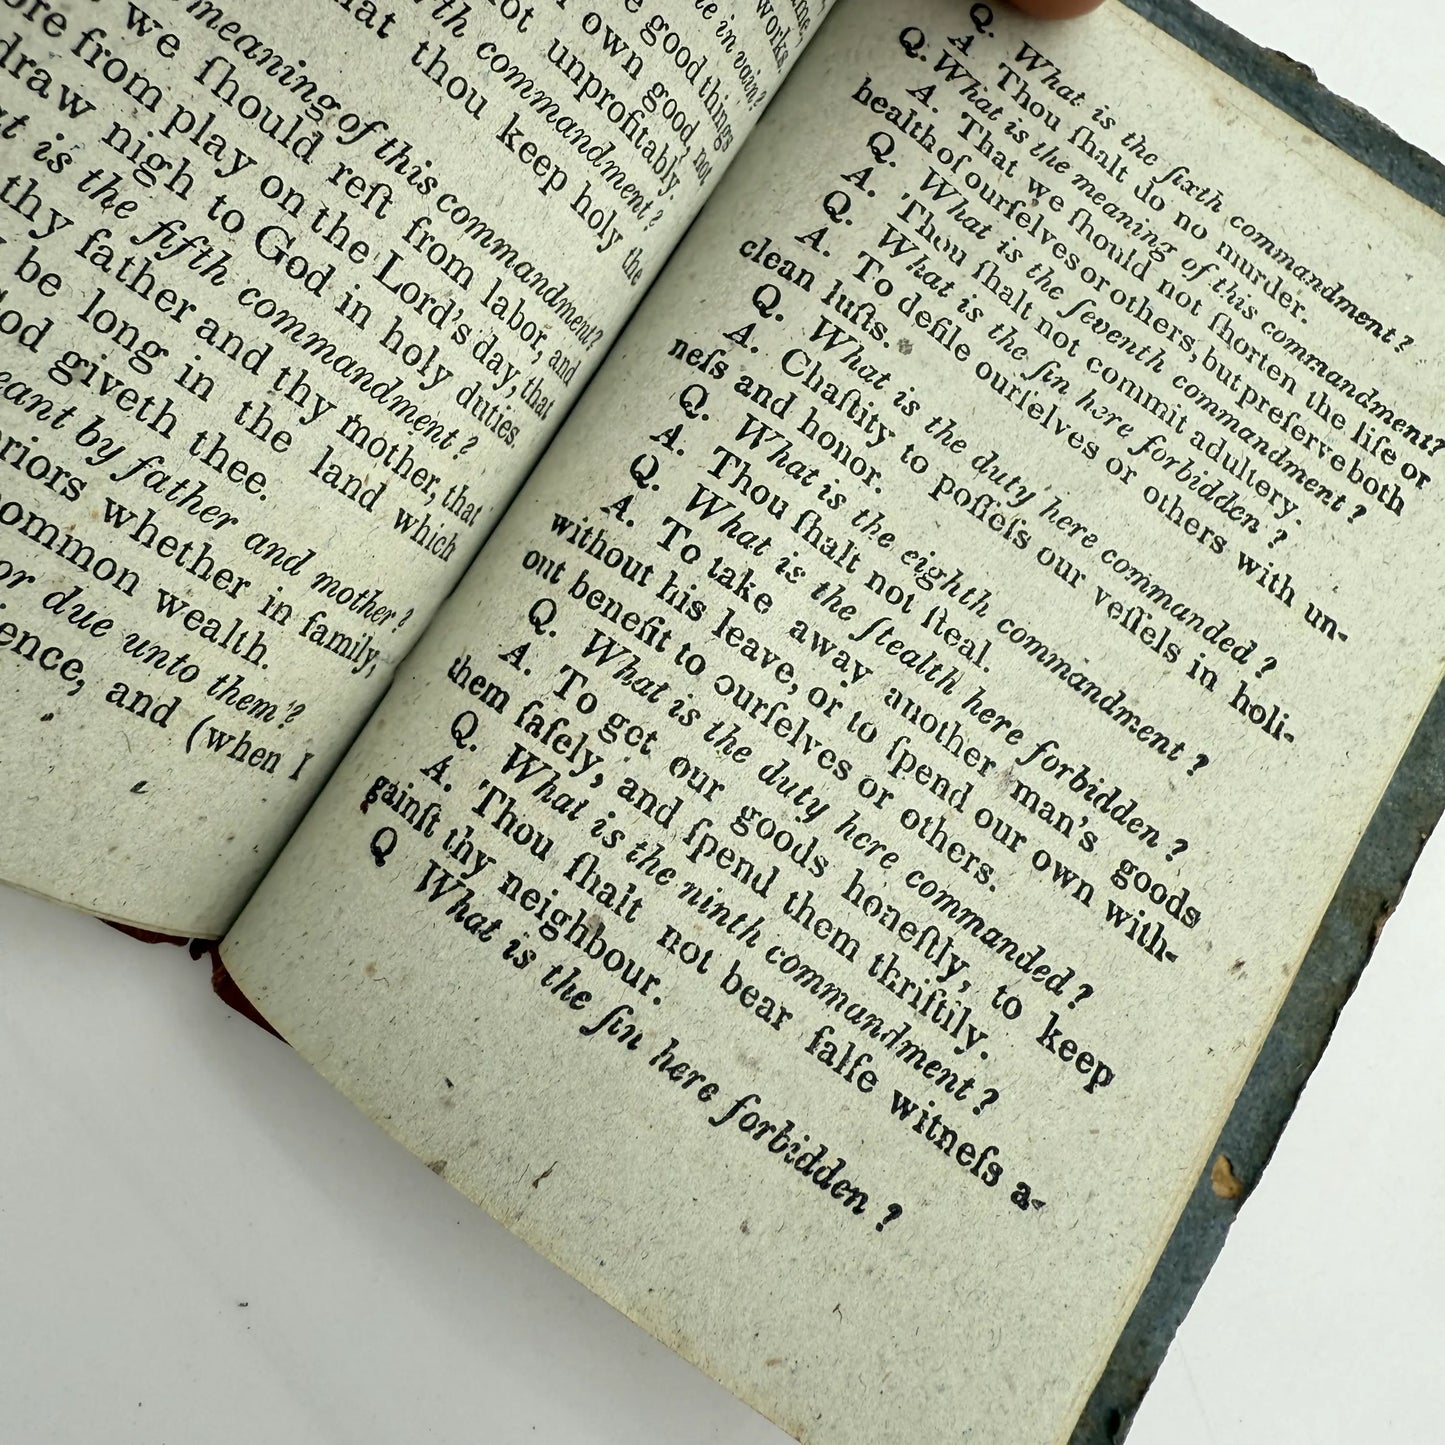 e good things
ot unprofitably.
own good, not
rth commandment?
hat thou keep holy the
meaning of this commandment?
we ſhould reſt from labor, and
ore from play on the Lord's day, that
draw nigh to God in holy duties.
at is the fifth commandment?
thy father and thy mother, that
be long in the land which
od giveth thee.
eant by father and mother?
riors whether in family,
ommon wealth.
or due unto them?
ence, and (when I
Q. What is the ſixth commandment?
A Thou ſhalt do no murder.
Q. What is the meaning of this commandment?
A. That we ſhould not ſhorten the life or
health of ourſelves or others, but preſerve both
Q. What is the ſeventh commandment?
A. Thou ſhalt not commit adultery.
Q. What is the ſin here forbidden?
A. To defile ourſelves or others with un-
clean luſts.
Q. What is the duty here commanded?
A. Chaſtity to poſſeſs our veſſels in holi-
neſs and honor.
Q. What is the eighth commandment?
A. Thou ſhalt not ſteal.
Q. What is the ſtealth here forbidden?
A. To take away another man's goods
without his leave, or to ſpend our own with-
out benefit to ourſelves or others.
Q. What is the duty here commanded?
A. To get our goods honeſtly, to keep
them ſafely, and ſpend them thriftily.
Q. What is the ninth commandment?
A. Thou ſhalt not bear falſe witneſs a-
gainſt thy neighbour.
Q What is the ſin here forbidden?